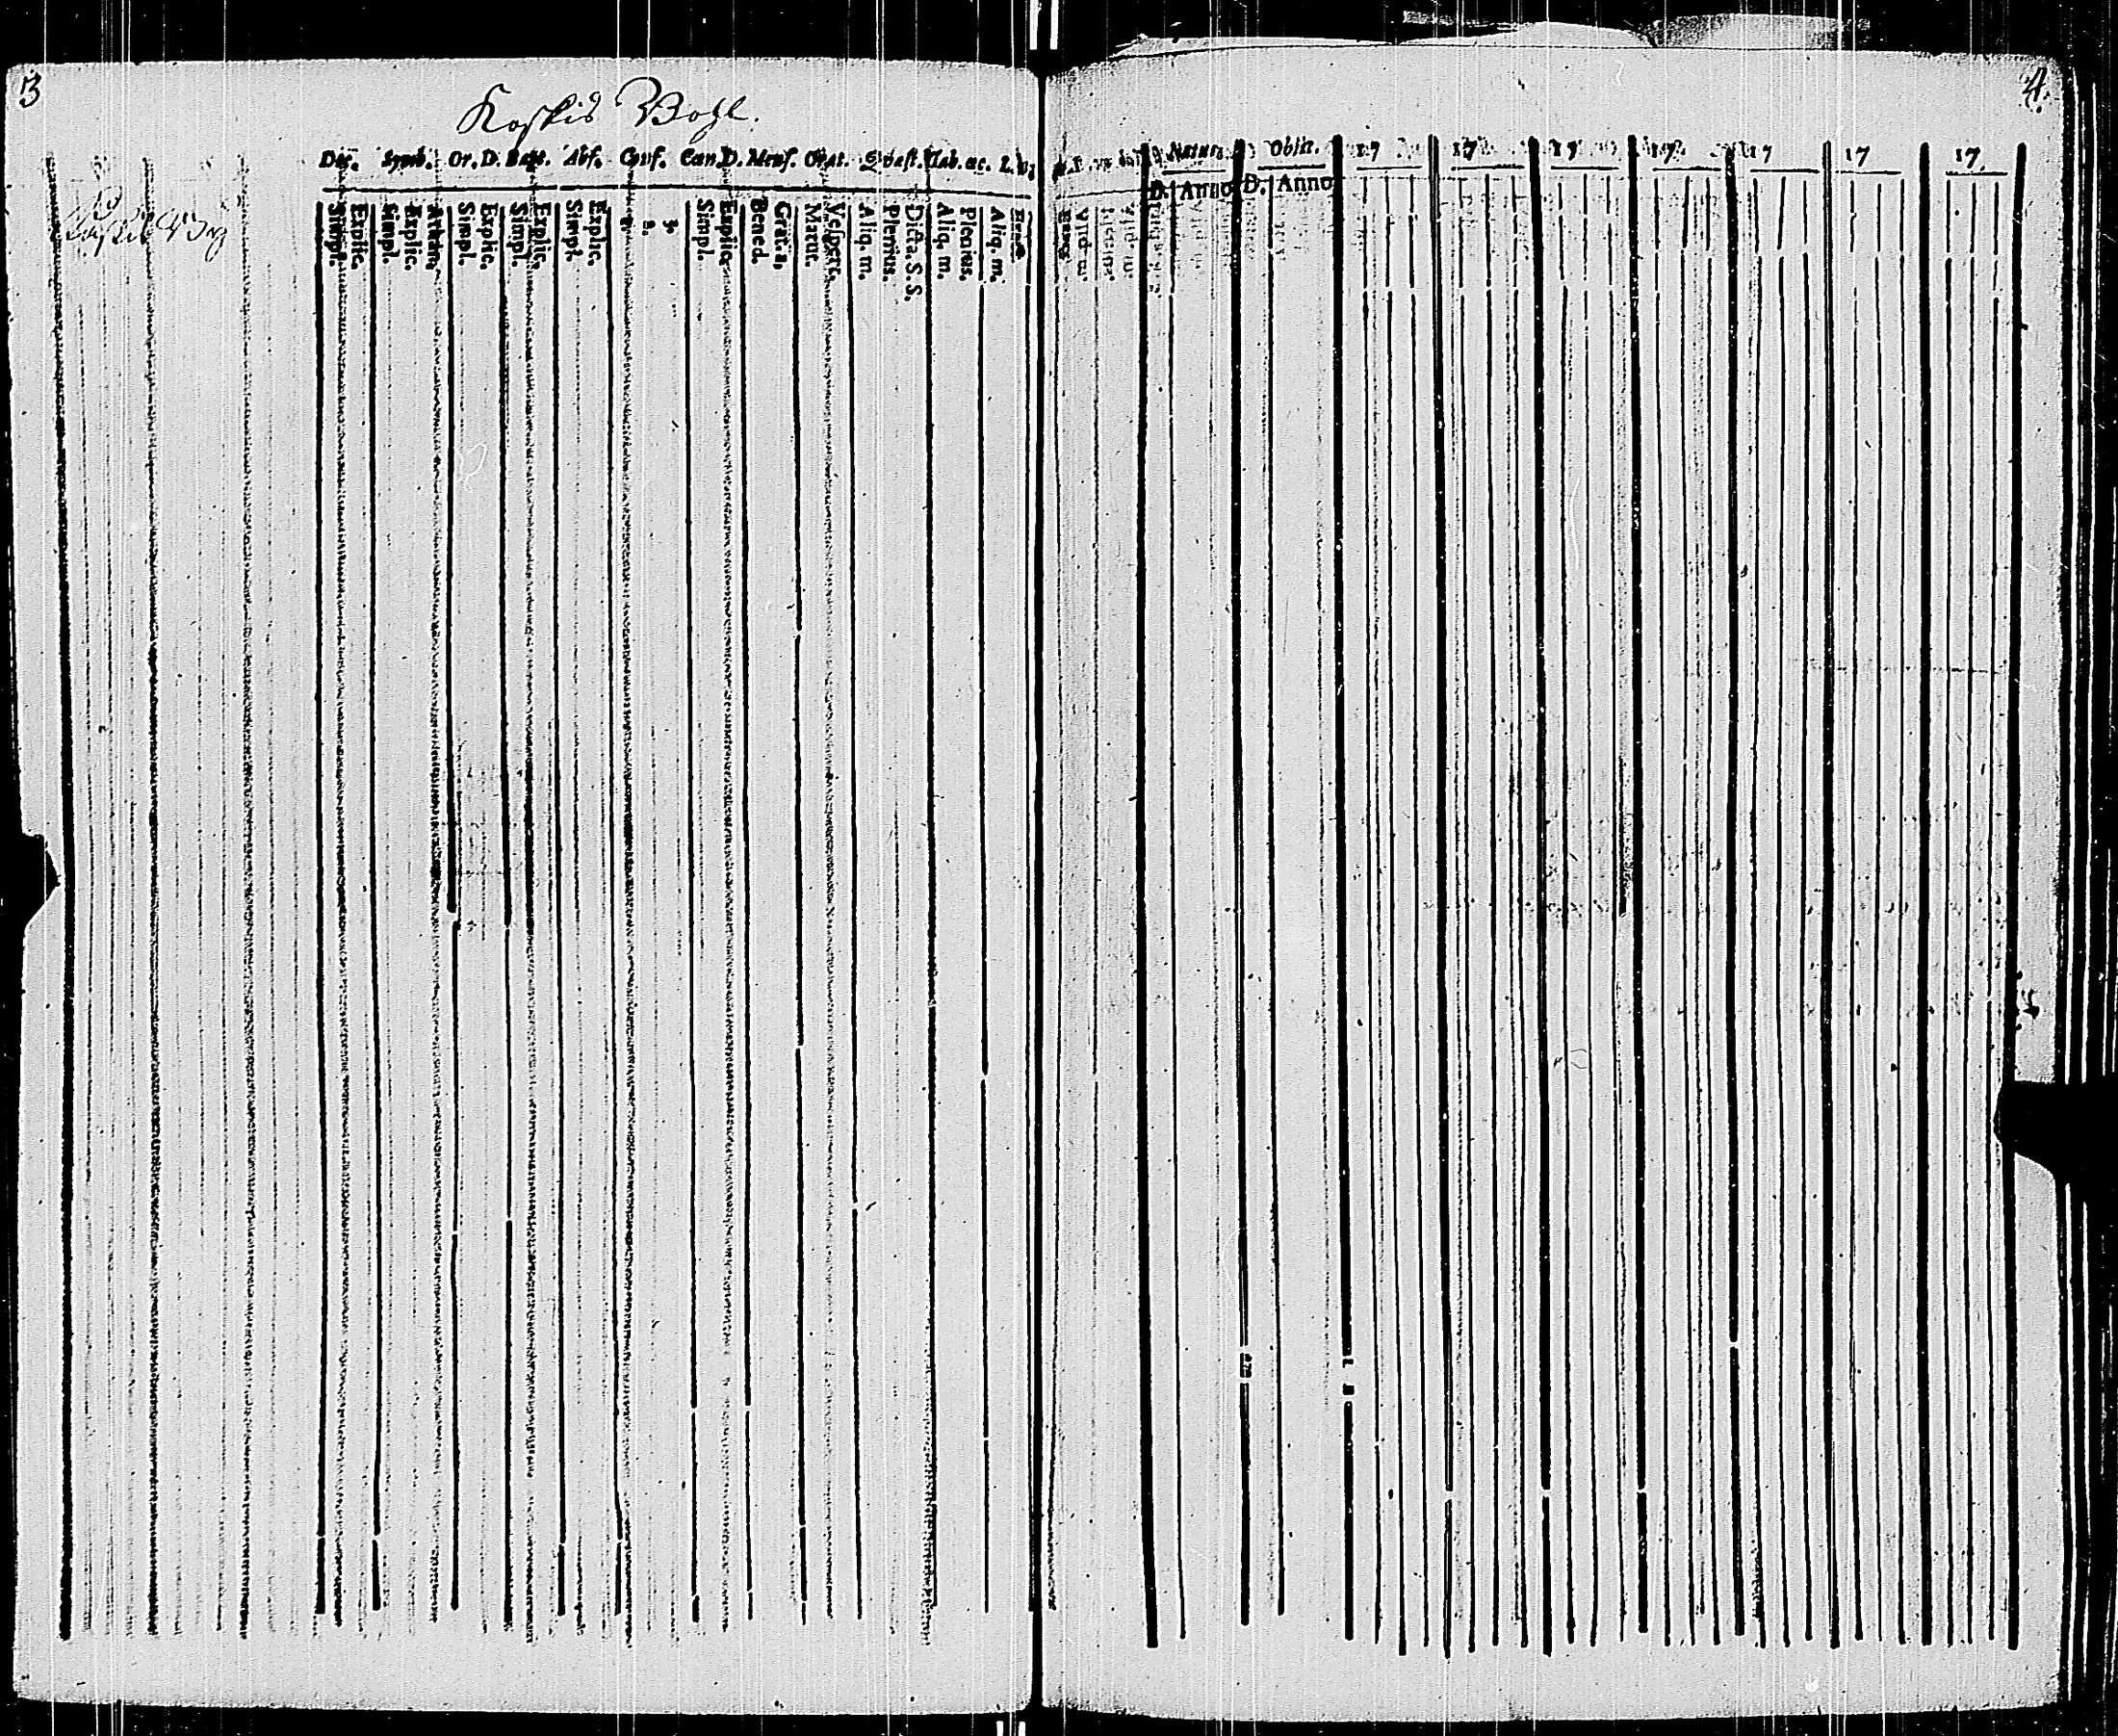 3
Koskis Bohl.
Dec. Symb. Or. D. Bapt. Abs. Conf. Cœn. D. Mens. Orat. Quæst. Tab. œc. L. V.
Simpl.
Explic.
Simpl.
Explic.
Athan.
Simpl.
Explic.
Simpl.
Explic.
Simpl.
Explic.
1.
2.
3.
Simpl.
Explic.
Bened.
Gratia,
Matut.
Vespert.
Aliq. m.
Plenius.
Dicta. S. S.
Aliq. m.
Plenius.
Aliq. m.
4.
Natus. Obiit. 17 17 17 17 17 17 17
D. Anno D. Anno